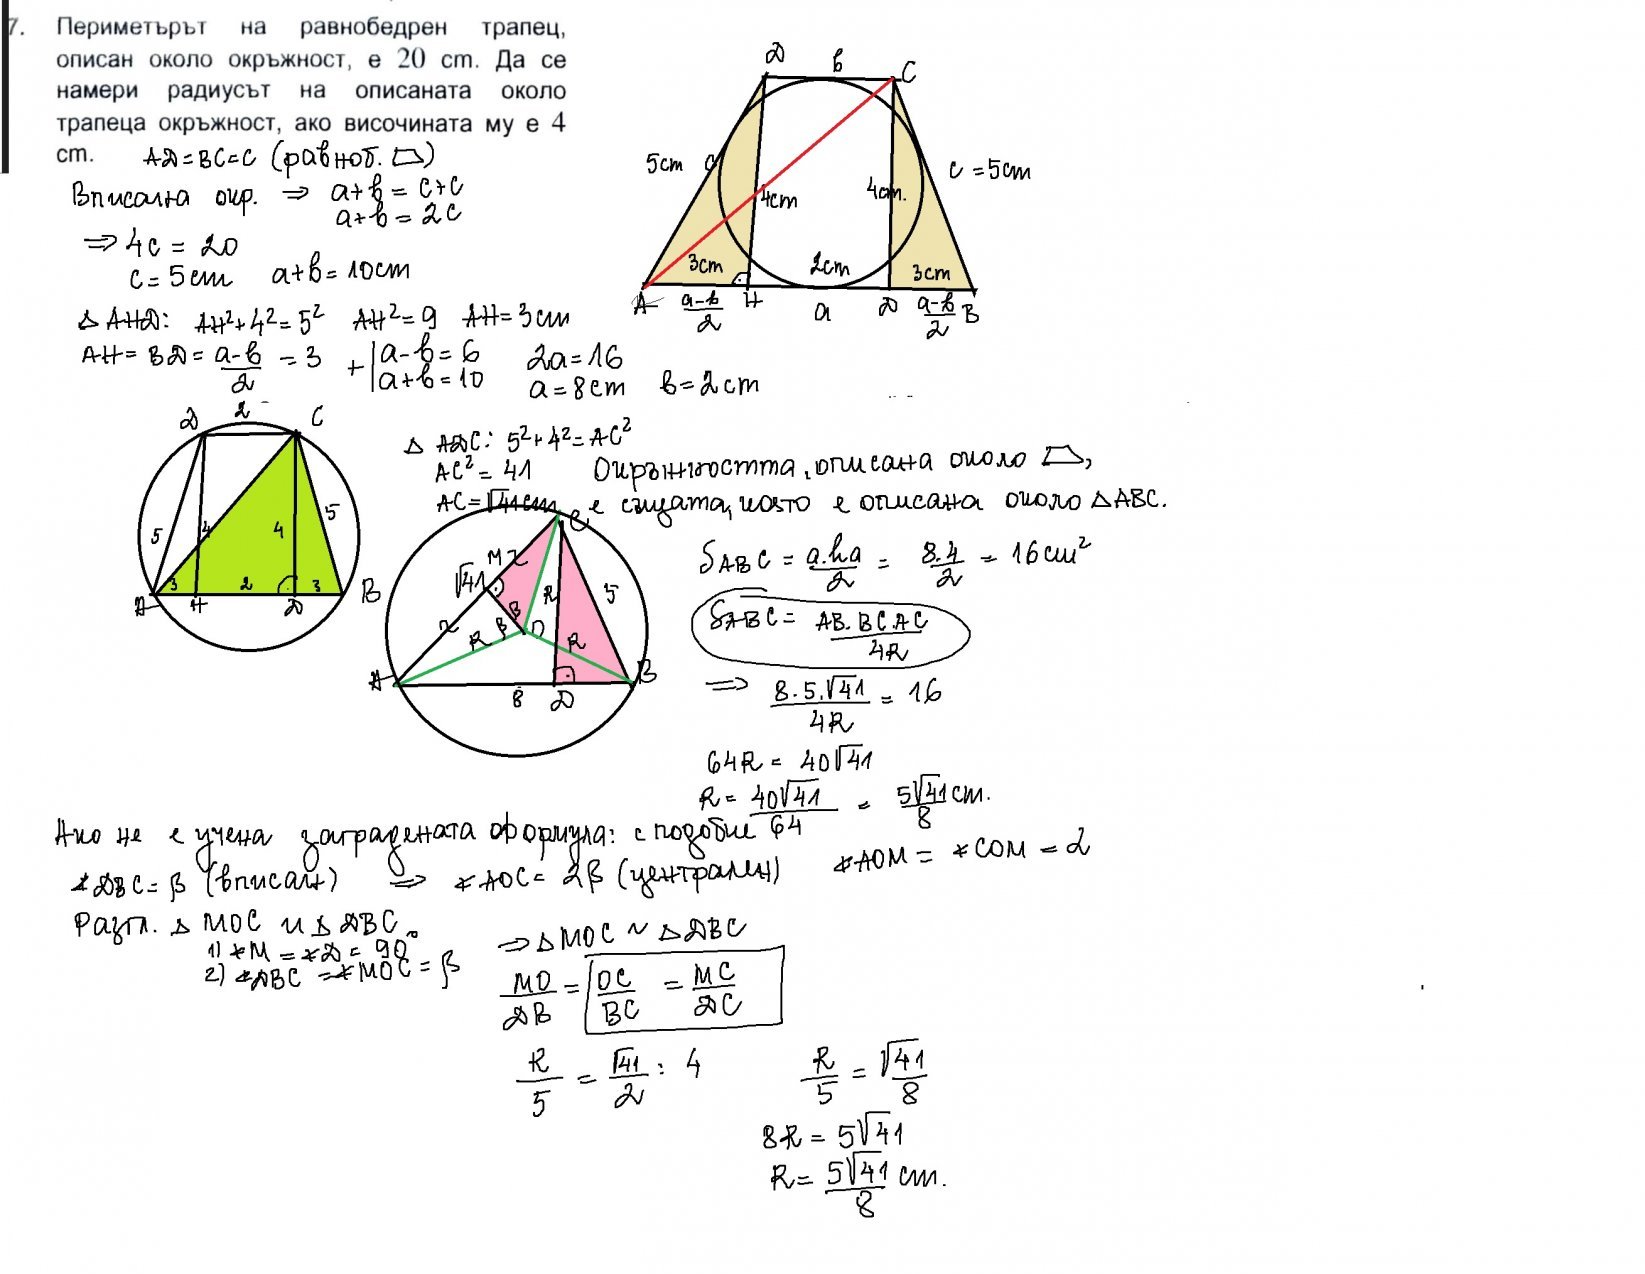 7. Периметърът на равнобедрен трапец,
описан около окръжност, е 20 cm. Да се
намери радиусът на описаната около
трапеца окръжност, ако височината му е 4
cm. AД=BC=C (равноб. ▱)
Вписана окр. ⇒ a+b = c+c
a+b = 2c
⇒ 4c = 20
c = 5cm a+b = 10cm
△ AHД: AH²+4²=5² AH²=9 AH=3cm
AH = BД = a-b/2 = 3 + | a-b=6 2a=16
a+b=10 a=8cm b=2cm
Д b C
5cm c 4cm 4cm. c =5cm
3cm 2cm 3cm
A a-b/2 H a Д a-b/2 B
Д 2 C
5 4 4 5
3 2 3
A H Д B
△ AДC: 5²+4²=AC²
AC²=41 Окръжността, описана около ▱,
AC=√41cm е същата, която е описана около △ABC.
C
M
√41 R 5
β β O
R R
A 8 Д B
S ABC = a.ha/2 = 8.4/2 = 16cm²
S ABC = AB.BC.AC/4R
⇒ 8.5.√41/4R = 16
64R = 40√41
R = 40√41/64 = 5√41/8 cm.
Ако не е учена заградената формула: с подобие
∢ДBC=β (вписан) ⇒ ∢AOC= 2β (централен) ∢AOM = ∢COM = 2
Разгл. △ MOC и △ДBC.
1) ∢M = ∢Д = 90° ⇒ △MOC ~ △ДBC
2) ∢ДBC = ∢MOC = β
MO/ДB = OC/BC = MC/ДC
R/5 = √41/2 : 4 R/5 = √41/8
8R = 5√41
R = 5√41/8 cm.